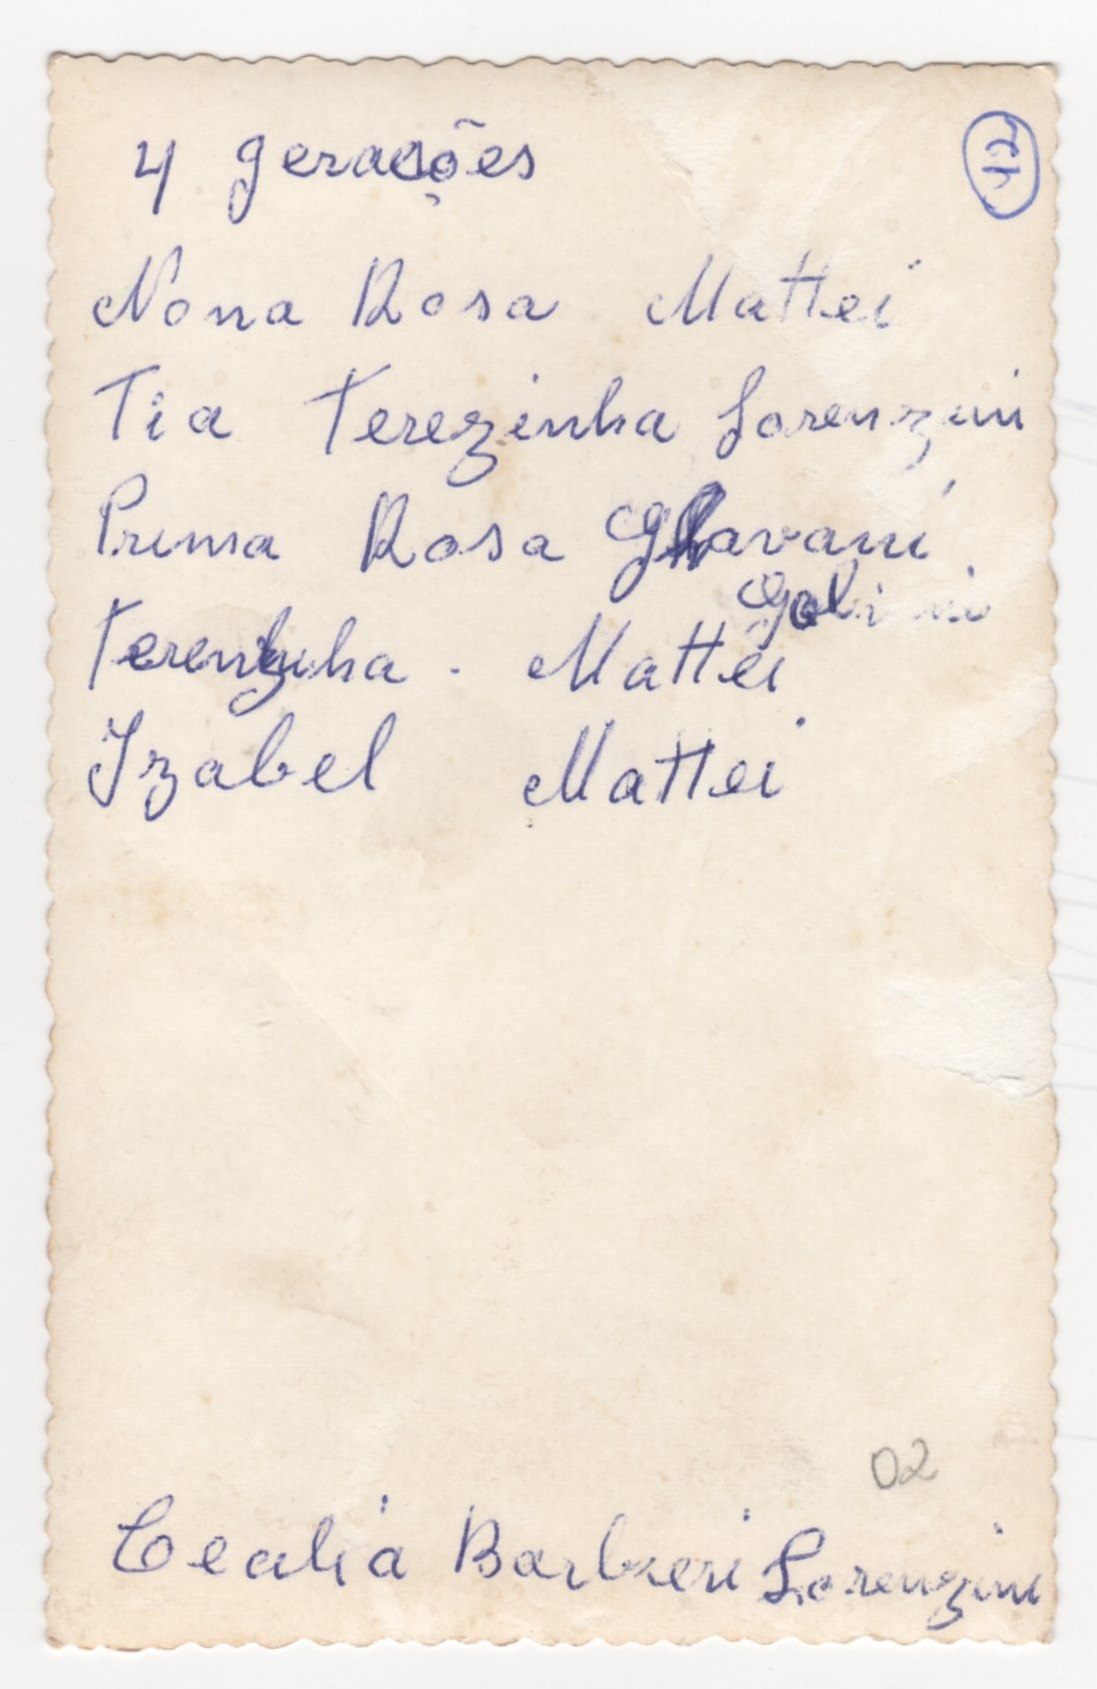 4 gerações
Nona Rosa Mattei
Tia Terezinha Lorenzini
Prima Rosa Giavani
Mattei
Izabel Mattei
02
Cecalia Barbieri Lorenzini